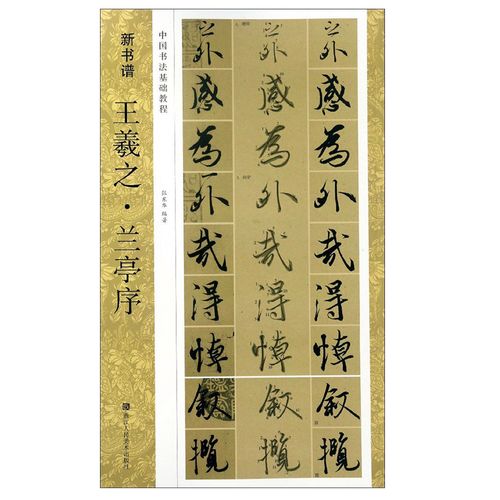 新书谱
王羲之·兰亭序
中国书法基础教程
编著
浙江人民美术出版社
之外感為外哉得悼叙攬
之外感為外哉得悼叙攬
之外感為外哉得悼叙攬